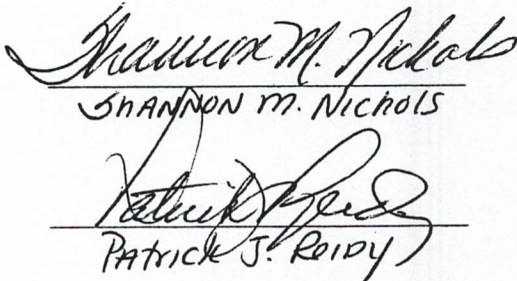 Shannon M. Nichols
SHANNON M. NICHOLS
Patrick J. Reidy
PATRICK J. REIDY